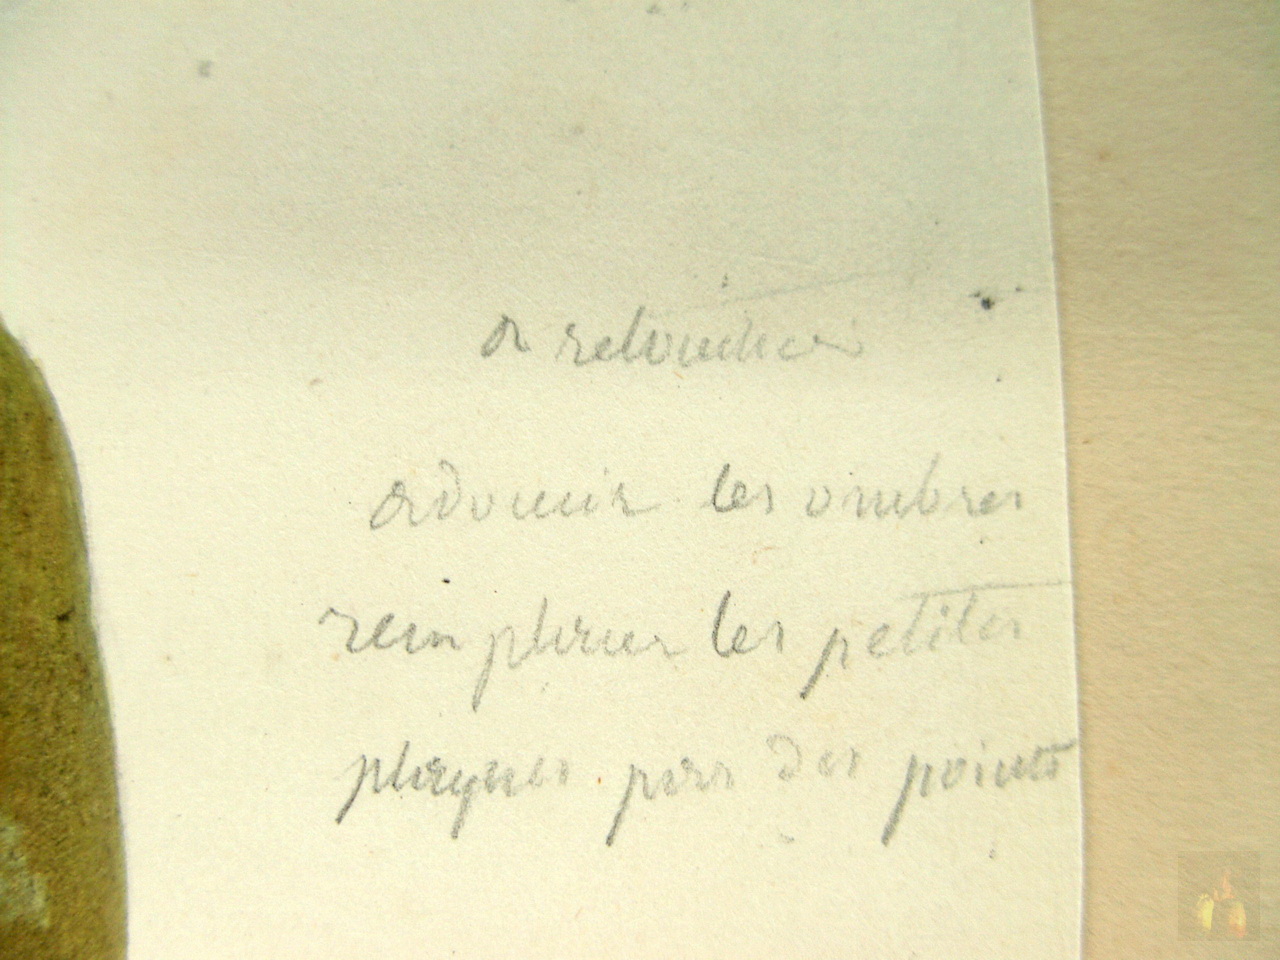 a retoucher
adoucir les ombres
remplacer les petites
plaques par des points